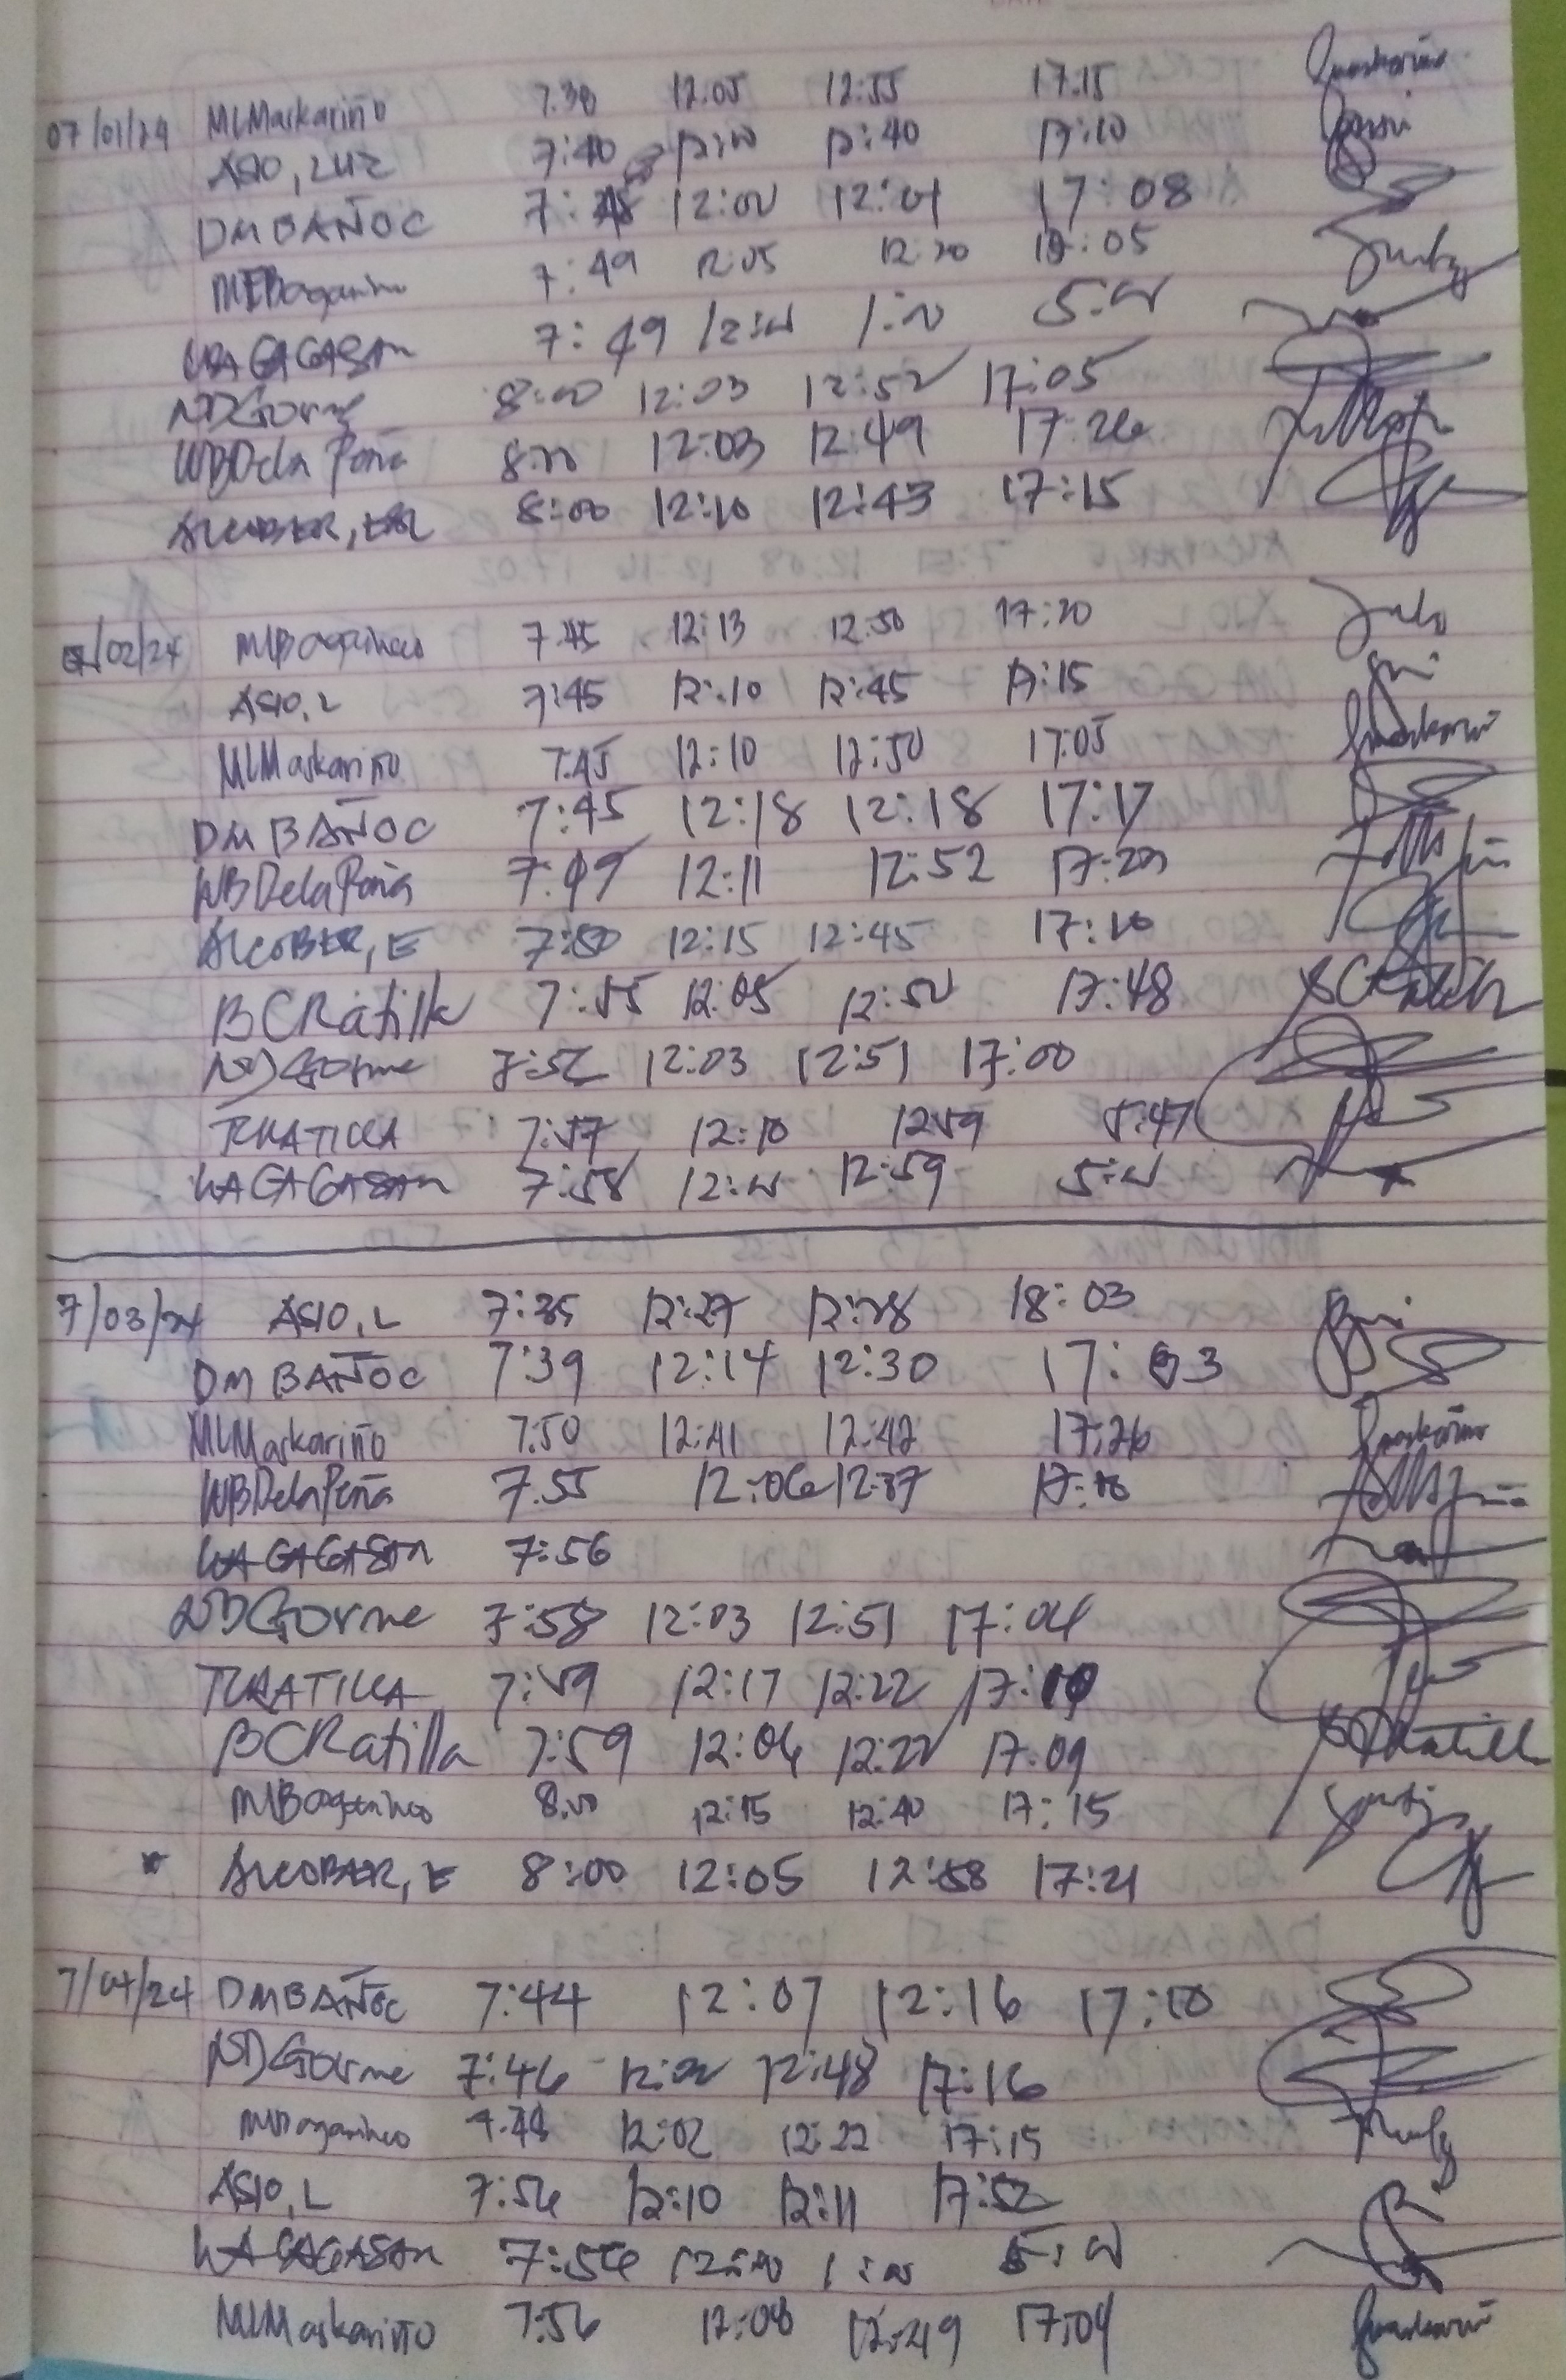 07/01/24 MLMaskariño 7.30 12.05 12:55 17:15
ASIO, LUZ 7:40 12:10 12:40 17:10
DMBAÑOC 12:00 12:01 17:08
7:49 12:05 12:20 05
WAGAGASAN 7:49 12:00 1:00 5:00
NDGorme 8:00 12:03 12:52 17:05
WBDela Peña 8:00 12:03 12:49 17:26
ALCOBER, 8:00 12:10 12:43 17:15
/02/24 7:45 12:13 12:50 17:20
ASIO, L 7:45 12:10 12:45 17:15
MLMaskariño 7:45 12:10 12:50 17:05
DMBAÑOC 7:45 12:18 12:18 17:17
WBDelaPeña 7:49 12:11 12:52
ALCOBER, E 7:50 12:15 12:45 17:10
BCRatilla 7:55 12:05 12:50 17:48
NDGorme 7:56 12:03 12:51 17:00
TCRATILLA 7:57 12:10 12:59 5:47
WAGAGASAN 7:58 12:00 12:59 5:00
7/03/24 ASIO, L 7:35 12:27 12:28 18:03
DMBAÑOC 7:39 12:14 12:30 17:
MLMaskariño 7:50 12:41 12:42 17:26
WBDelaPeña 7.55 12:06 12:37
WAGAGASAN 7:56
NDGorme 7:58 12:03 12:51 17:04
TCRATILLA 7:59 12:17 12:22
BCRatilla 7:59 12:06 12:22 17:09
8:00 12:15 12:40 17:15
* ALCOBER, E 8:00 12:05 12:58 17:21
7/04/24 DMBAÑOC 7:44 12:07 12:16 17:10
NDGorme 7:46 12:02 12:48 17:16
12:02 12:22 17:15
ASIO, L 7:56 12:10 12:11 17:52
WAGAGASAN 7:56 12:00 1:00 5:00
MLMaskariño 7:56 12:08 12:49 17:04